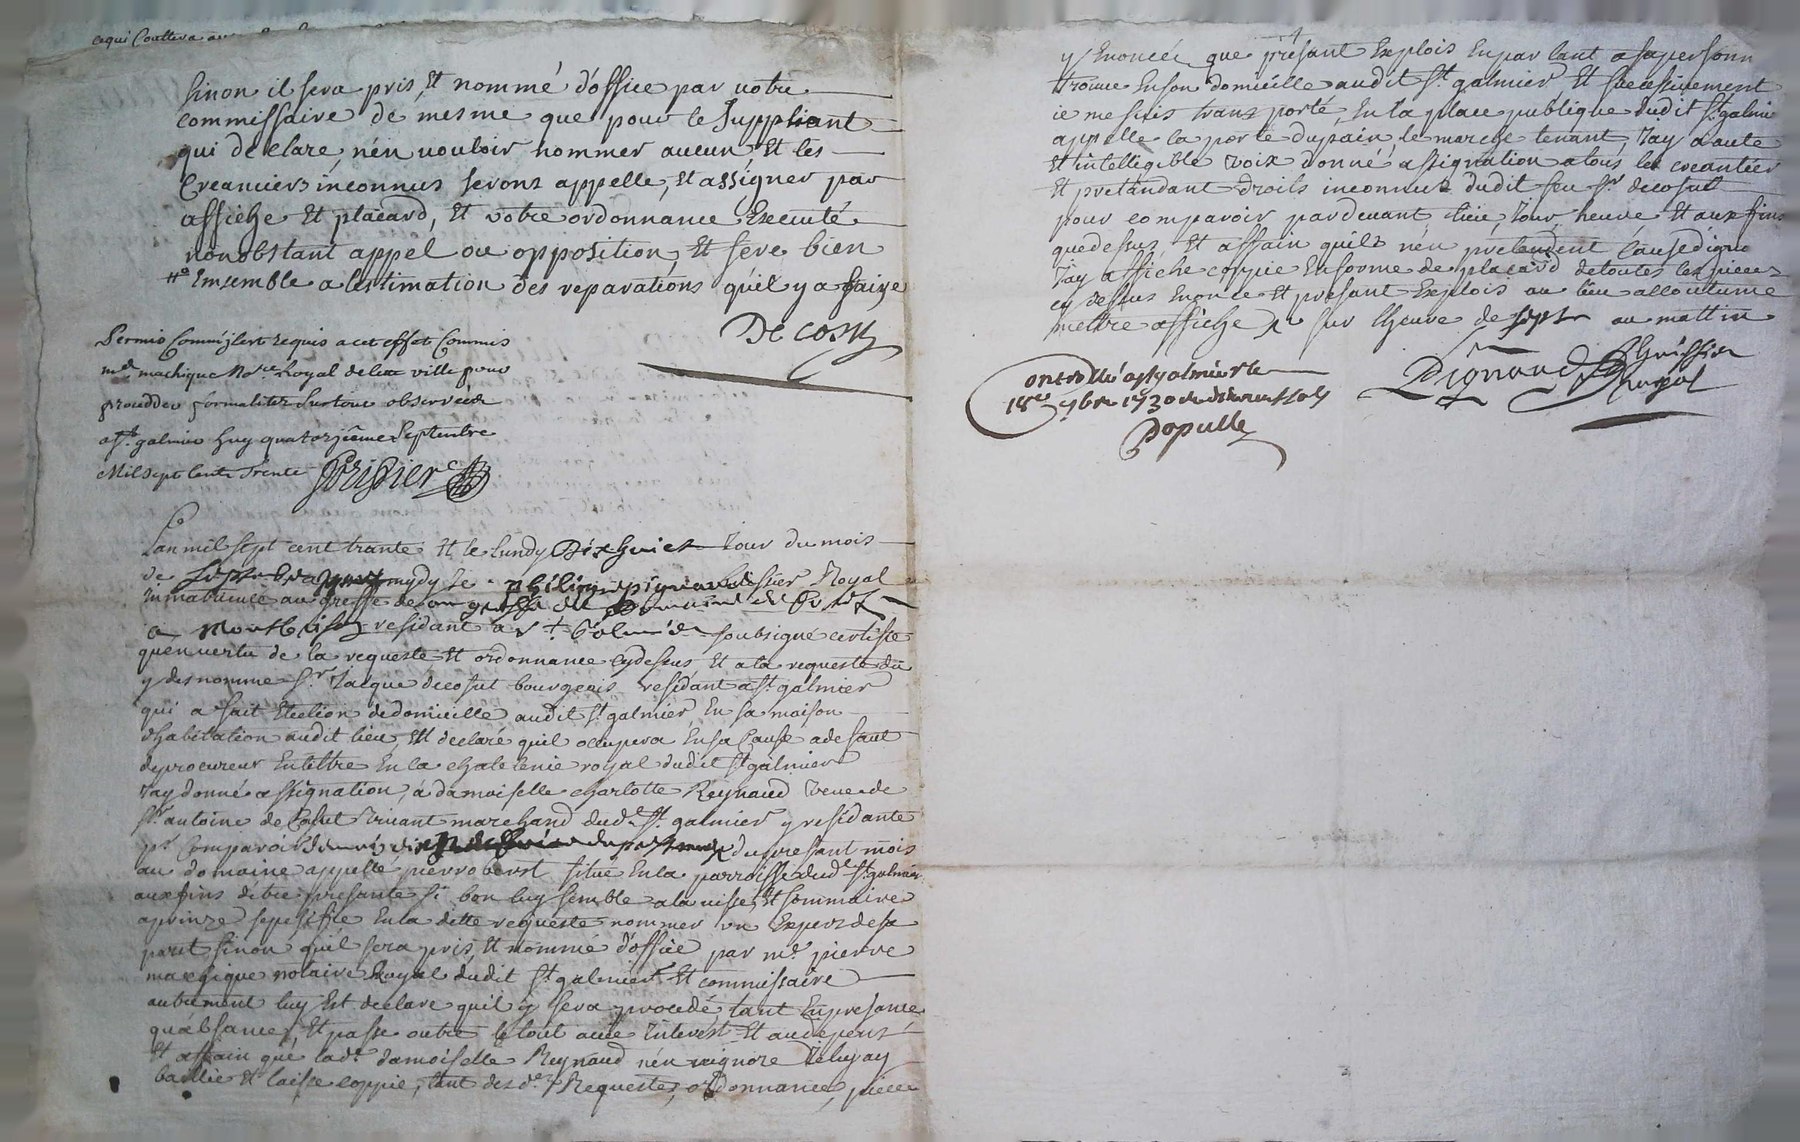 ce qui Couttera
sinon il sera pris, Et nommé d'office par votre
commissaire de mesme que pour le Suppliant
qui declare, n'en vouloir nommer aucun, Et les
Creanciers inconnus seront appellé, Et assigner par
affiche Et placard, Et votre ordonnance Executé
nonobstant appel ou opposition, Et fere bien
Ensemble a lestimation des reparations qu'il y a faire
Decosu
Permis Commission requis a cet effet Commis
me machique Nore Royal de cette ville pour
proceder formalitez surtout observées
a st galmier huy quatorzième Septembre
Mil Sept Cent Trente
Lan mil sept cent trante Et le lundy Dixhuict Jour du mois
de Septembre mydy Je philippe pignard huissier Royal
Inmatriculé au greffe de
a Montbrison residant a St Galmier soubsigné certifie
quen vertu de la requeste Et ordonnance cydessus Et a la requeste du
y desnommé Sr Jacque decosut bourgeois residant a St galmier
qui a fait Ellection de domicille audit St galmier En sa maison
dhabitation audit lieu, Et declaré quil occupera En sa Cause a defaut
de procureur En tiltre En la chatelenie royal dudit St galmier
Jay donné assignation, à damoiselle charlotte Reynaud veuve de
Sr antoine de Cosut vivant marchand dud. St galmier y residante
pr Comparoir du presant mois
au domaine appellé pierrobert situé En la parroisse dud. St galmier
aux fins d'être presante si bon luy semble a la visite, Et sommaire
aprinze speciffié En la ditte requeste nommer un Expert de sa
part sinon qu'il sera pris, Et nommé d'office par me pierre
machique notaire Royal dudit St galmier Et commissaire
autrement luy Est declaré quil y sera procedé, tant En presance
qu'absance, Et passé outre le tout avec Interest Et aux depens
Et affain que lade damoiselle Reynaud n'en ignore Je luy ay
baillié Et laissé coppie, tant des de Requeste, ordonnance, piece
y Enoncée que presant Exploit En parlant a sa personne
trouvé En son domicille audit St galmier, Et successivement
je me suis transporté, En la place publique dudit St galmier
appellé la porte du pain, le marché tenant, Jay a aute
Et intelligible voix donné assignation a tous les creantier
Et pretandant droits inconnus dudit feu Sr decosut
pour comparoir pardevant lieu, Jour, heure Et aux fins
que dessus, Et affain quils n'en pretendent Cause d'igno
Jay affiché coppie En forme de placard de toutes les pieces
cy dessus Enoncé Et presant Exploit au lieu accoutumé
mettre affiche sur lheure de sept au mattin
Pignard huissier
Royal
Controllé a St galmier le
18e 7bre 1730
Populle